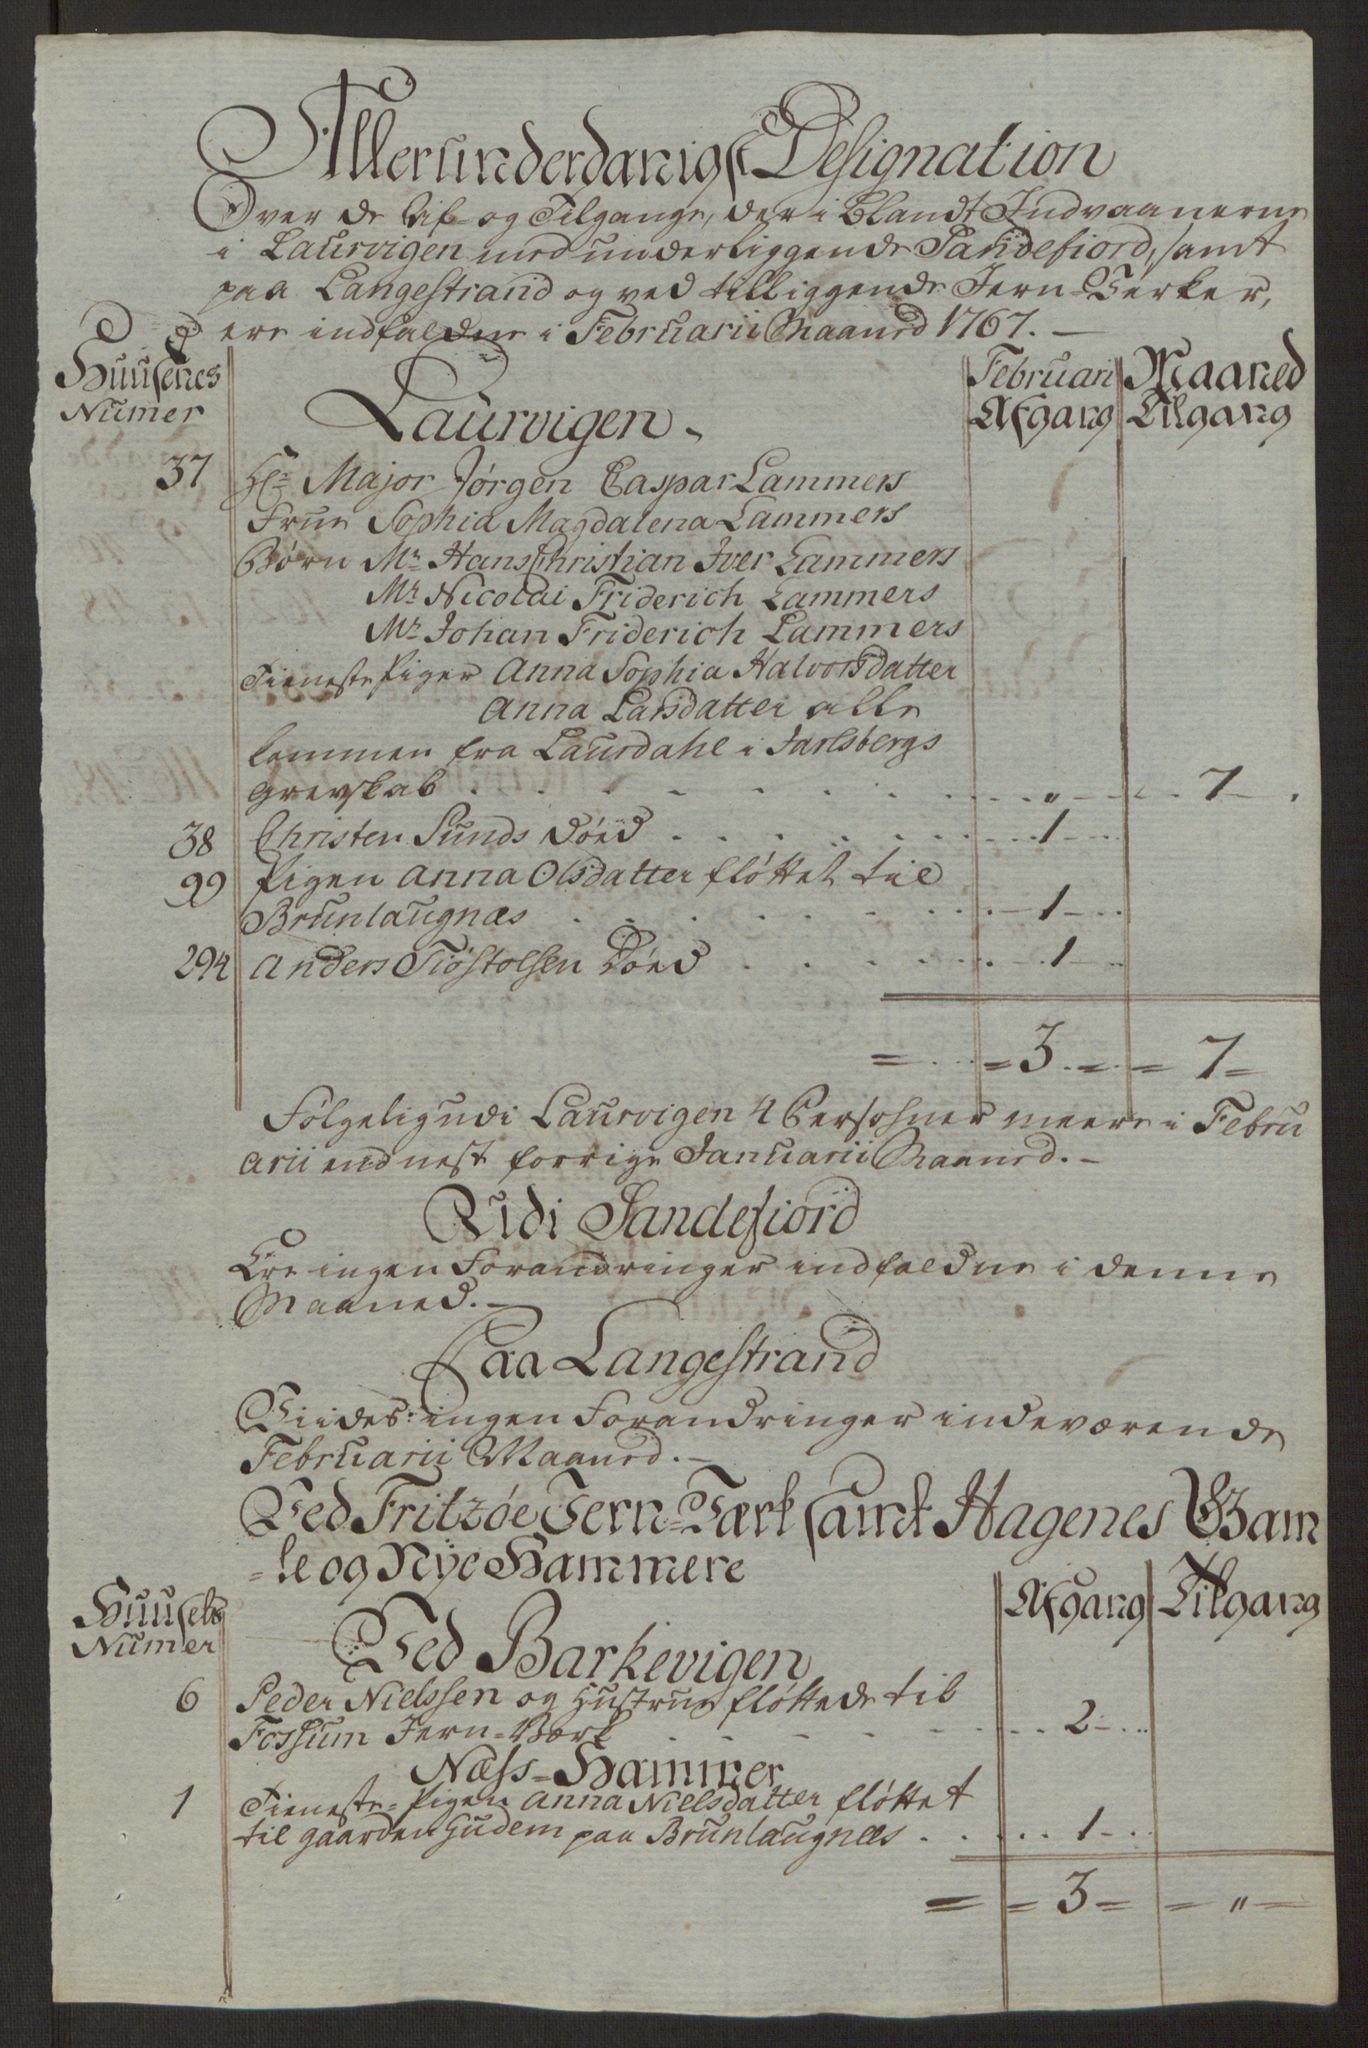 Allerunderdanigst Designation
Over de Af- og Tilgange, der i blandt Indvaanerne
i Laurvigen med underliggende Sandefiord, samt
paa Langestrand og ved tilliggende Jern-Verker,
ere indfaldne i Februarii Maaned 1767. —
Huusenes Februari Maaned
Numer Laurvigen. Afgang Tilgang
37 Hr. Major Jørgen Caspar Lammers
Frue Sophia Magdalena Lammers
Børn Mr. Hans Christian Iver Lammers
Mr. Nicolai Friderich Lammers
Mr. Johan Friderich Lammers
Tieneste Piger Anna Sophia Halvorsdatter
Anna Larsdatter alle
kommen fra Laurdahl i Jarlsbergs
Grevskab . . . . . . . . „ 7
38 Christen Sunds Døed . . . . . . 1
99 Pigen Anna Olsdatter fløttet til
Brunlaugnæs . . . . . . . 1
294 Anders Tiøstolsen Døed . . . . 1
= 3 = 7 =
Følgelig udi Laurvigen 4 Persohner meere i Febru
arii end nest forrige Januarii Maaned. –
Udi Sandefiord
Ere ingen Forandringer indfaldne i denne
Maaned. –
Paa Langestrand
Viides: ingen Forandringer indeværende
Februarii Maaned. –
Ved Fritzøe Jern-Værk samt Hagenes Gam
-le og Nye Hammere
Huusets Afgang Tilgang
Numer Ved Barkevigen
6 Peder Nielssen og Hustrue fløttede til
Fossum Jern-Værk . . . . . . 2
Næss-Hammer
1 Tieneste-Pigen Anna Nielsdatter fløttet
til gaarden Hudem paa Brunlaugnæs . . . . 1
= = 3 = = „ =